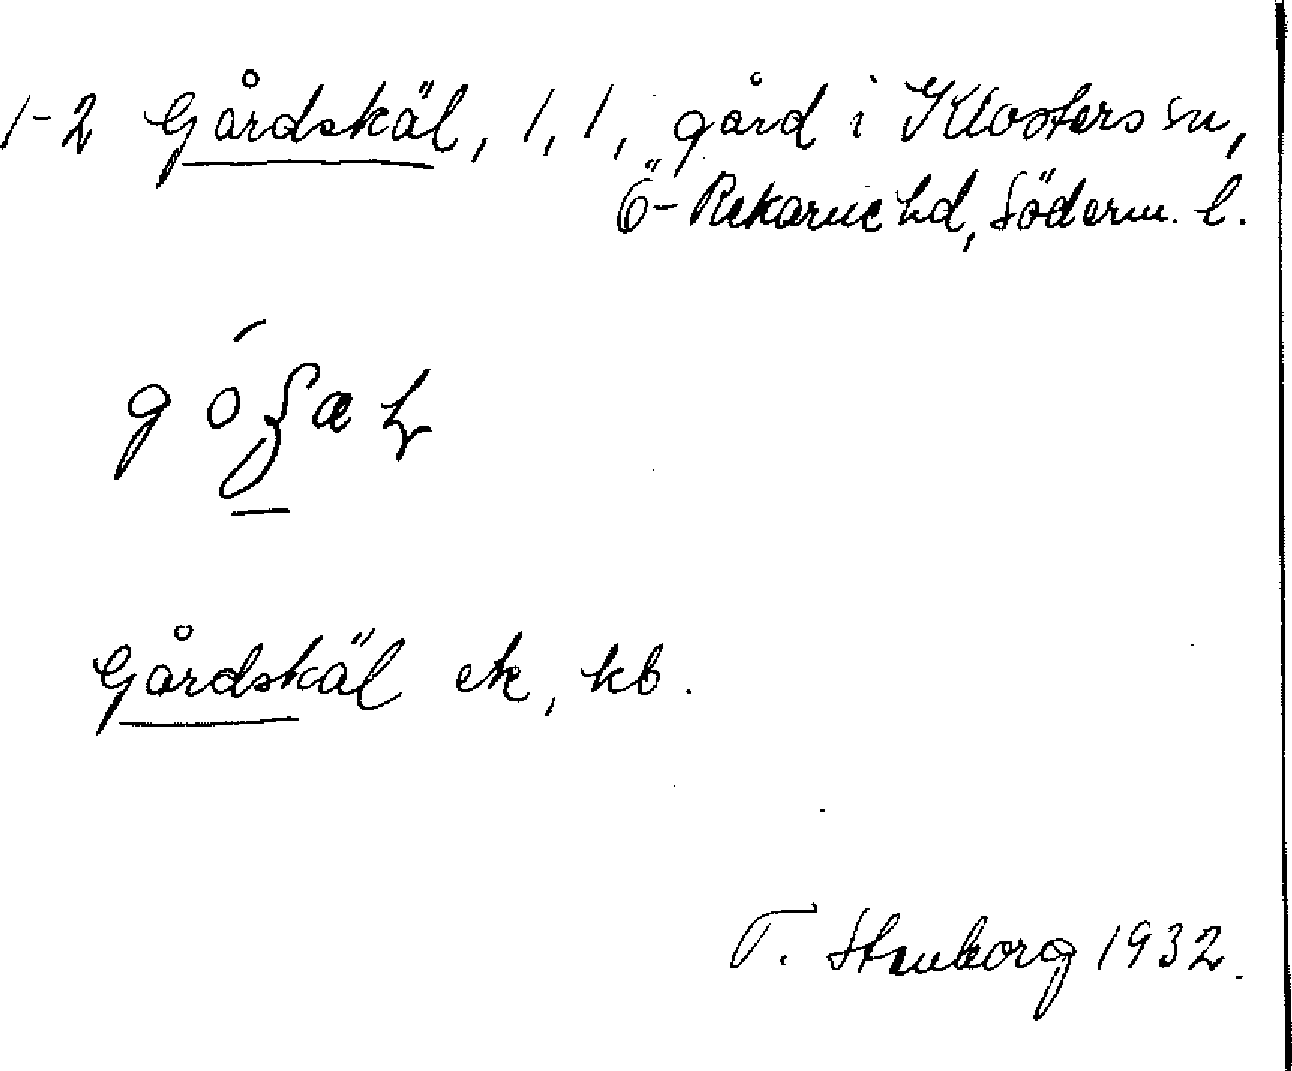 1-2 Gårdskäl, 1, 1, gård i Klosters sn,
Ö-Rekarne hd, Söderm. l.
Gårdskäl ek, kb.
T. Stenborg 1932.